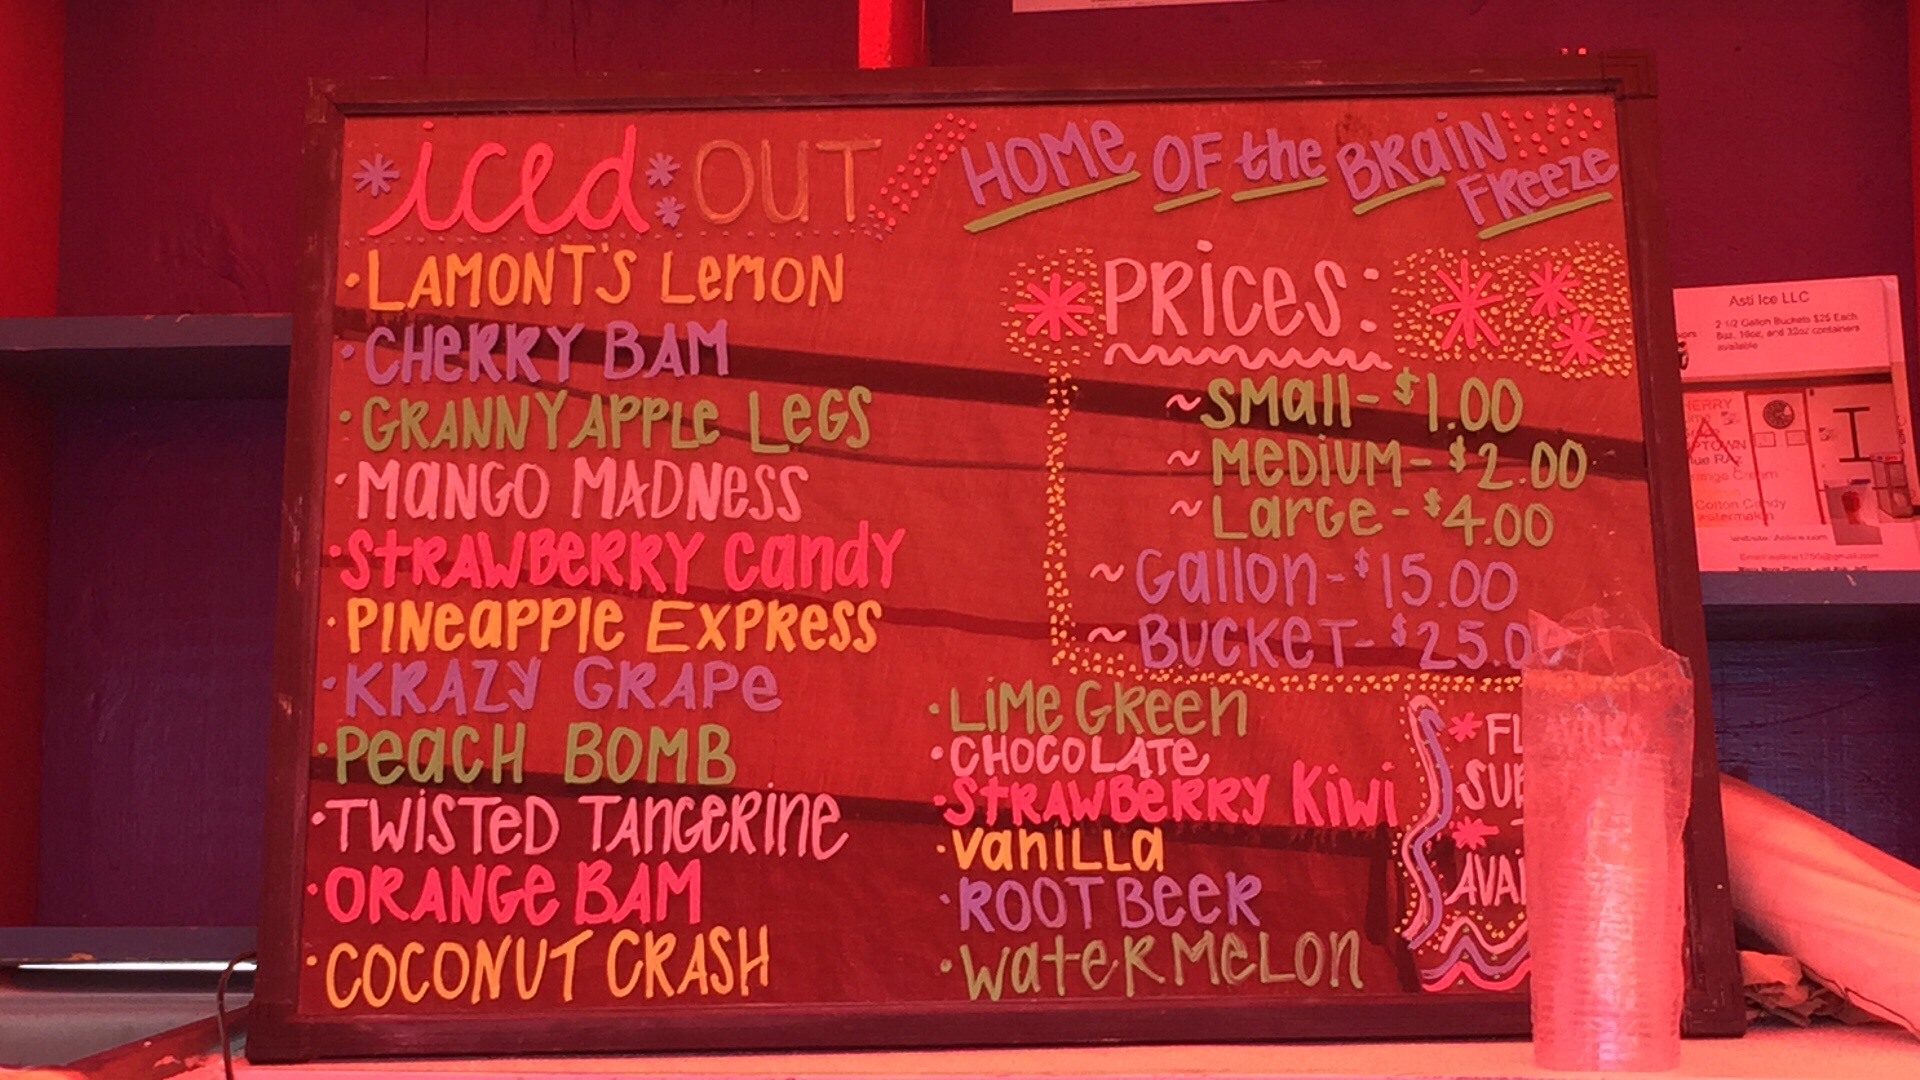 iced OUT
HOME OF the BRaiN FReeze
LAMONT'S LemON
CHeRRY BAM
GRANNY APPLe LeGS
MaNGO MADNess
StRAWBeRRY Candy
PiNeapple EXPRess
KRAZy GRAPe
PeacH BOMB
TWiSTeD TANGeRine
ORANGe BAM
COCONUT CRASH
PRiCes:
~ Small - $1.00
~ MeDiUM - $2.00
~ LarGe - $4.00
~ Gallon - $15.00
~ BUCKeT - $25.0
LiMe GReen
CHOCOLATe
STRAWBeRRY Kiwi
VaniLLa
ROOT BEER
WateRMeLon
Asti Ice LLC
2 1/2 Gallon Buckets $25 Each
8oz, 16oz, and 32oz containers
available
Cotton Candy